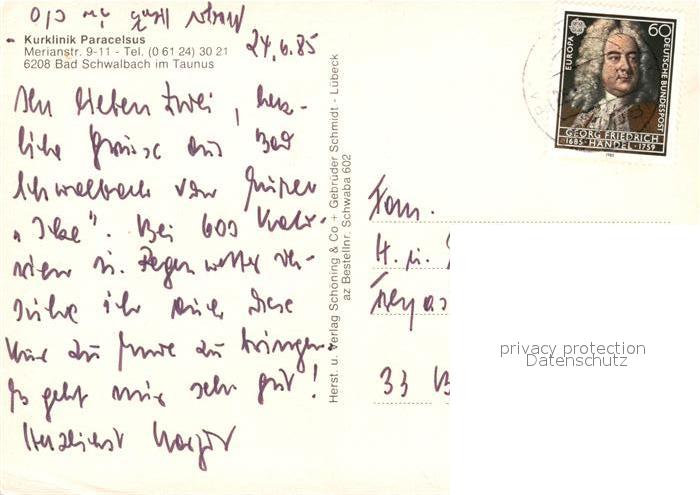 Kurklinik Paracelsus
Merianstr. 9-11 - Tel. (0 61 24) 30 21
6208 Bad Schwalbach im Taunus
24.6.85
Ihr lieben zwei, herz-
liche Grüsse aus Bad
Schwalbach von
"Ilse". Bei 600 Kalo-
rien u. Regenwetter ver-
suche ich auch diese
Kur zu Ende zu bringen.
Es geht mir sehr gut!
Herzlichst Margot
Herst. u. Verlag Schöning & Co + Gebrüder Schmidt - Lübeck
az Bestellnr. Schwaba 602
EUROPA
60
DEUTSCHE BUNDESPOST
GEORG FRIEDRICH
1685 · HÄNDEL · 1759
1985
Fam.
H. u.
33 B
privacy protection
Datenschutz